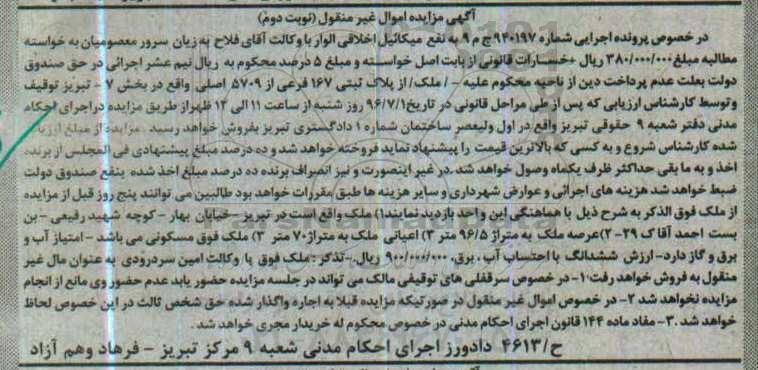 آگهی مزایده اموال غیر منقول (نوبت دوم)
در خصوص پرونده اجرایی شماره ۹۴۰۱۹۷ ج م ۹ به نفع میکائیل اخلاقی الوار با وکالت آقای فلاح به زیان سرور معصومیان به خواسته
مطالبه مبلغ ۳۸۰/۰۰۰/۰۰۰ ریال +خسارات قانونی از بابت اصل خواسته و مبلغ ۵ درصد محکوم به ریال نیم عشر اجرائی در حق صندوق
دولت بعلت عدم پرداخت دین از ناحیه محکوم علیه - / ملک/ از پلاک ثبتی ۱۶۷ فرعی از ۵۷۰۹ اصلی واقع در بخش ۷ - تبریز توقیف
و توسط کارشناس ارزیابی که پس از طی مراحل قانونی در تاریخ ۹۶/۷/۱ روز شنبه از ساعت ۱۱ الی ۱۲ ظهر از طریق مزایده در اجرای احکام
مدنی دفتر شعبه ۹ حقوقی تبریز واقع در اول ولیعصر ساختمان شماره ۱ دادگستری تبریز بفروش خواهد رسید. مزایده از مبلغ ارزیابی
شده کارشناس شروع و به کسی که بالاترین قیمت را پیشنهاد نماید فروخته خواهد شد و ده درصد مبلغ پیشنهادی فی المجلس از برنده
اخذ و به ما بقی حداکثر ظرف یکماه وصول خواهد شد. در غیر اینصورت و نیز انصراف برنده ده درصد مبلغ اخذ شده بنفع صندوق دولت
ضبط خواهد شد هزینه های اجرائی و عوارض شهرداری و سایر هزینه ها طبق مقررات خواهد بود طالبین می توانند پنج روز قبل از مزایده
از ملک فوق الذکر به شرح ذیل با هماهنگی این واحد بازدید نمایند ۱) ملک واقع است در تبریز -خیابان بهار - کوچه شهید رفیعی - بن
بست احمد آقا ک ۲۹- ۲)عرصه ملک به متراژ ۹۶/۵ متر ۳) اعیانی ملک به متراژ ۷۰ متر ۳) ملک فوق مسکونی می باشد - امتیاز آب و
برق و گاز دارد- ارزش ششدانگ با احتساب آب ، برق، ۹۰۰/۰۰۰/۰۰۰ ریال.-تذکر: ملک فوق با وکالت امین سردرودی به عنوان مال غیر
منقول به فروش خواهد رفت۰۱- در خصوص سرقفلی های توقیفی مالک می تواند در جلسه مزایده حضور یابد عدم حضور وی مانع از انجام
مزایده نخواهد شد ۲- در خصوص اموال غیر منقول در صورتیکه مزایده قبلا به اجاره واگذار شده حق شخص ثالث در این خصوص لحاظ
خواهد شد .۳- مفاد ماده ۱۴۴ قانون اجرای احکام مدنی در خصوص محکوم له خریدار مجری خواهد شد .
ح/۴۶۱۳ دادورز اجرای احکام مدنی شعبه ۹ مرکز تبریز - فرهاد وهم آزاد